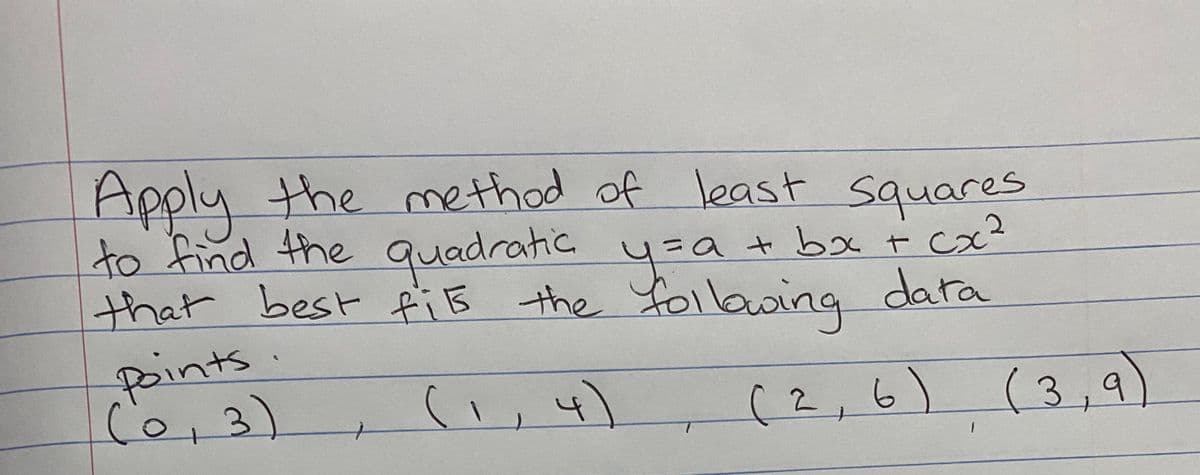 Apply the method of least squares
to find the quadratic y=a + bx + cx²
that best fits the following data
points.
(0, 3) , (1, 4) , (2, 6) , (3, 9)